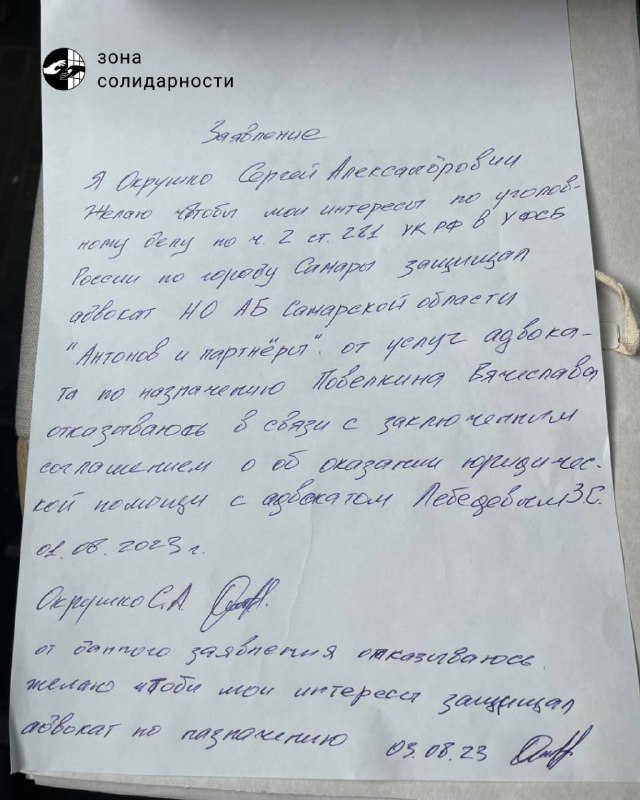 зона
солидарности
Заявление
Я Окрушко Сергей Александрович
желаю чтобы мои интересы по уголов-
ному делу по ч. 2 ст. 281 УК РФ в УФСБ
России по городу Самары защищал
адвокат НО АБ Самарской области
"Антонов и партнёры". от услуг адвока-
та по назначению Повелкина Вячеслава
отказываюсь в связи с заключенним
соглашением о об оказании юридичес-
кой помощи с адвокатом Лебедевым З.С.
01.08.2023 г.
Окрушко С.А
от данного заявления отказываюсь.
желаю чтоби мои интересы защищал
адвокат по назначению 03.08.23